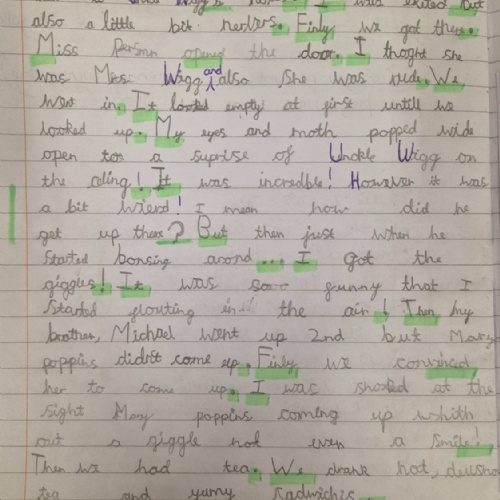 I was exited But
also a little bit nerves. Finly we got there.
Miss Persmn opened the door. I thoght she
was Mrs Wigg and also she was rude. We
went in. It looked empty at first untill we
looked up. My eyes and moth popped wide
open too a suprise of Unckle Wigg on
the celing! It was incredble! However it was
a bit wierd! I mean how did he
get up there? But then just when he
started bonsing arond... I got the
giggles! It was soo funny that I
started flouting in the air! Then my
brother, Michael went up 2nd but Mary
poppins didn't come up. Finly we convinced
her to come up. I was shoked at the
sight Mary poppins coming up whith
out a giggle not even a smile!
Then we had tea. We drank hot,
tea and yumy Sadwichis.